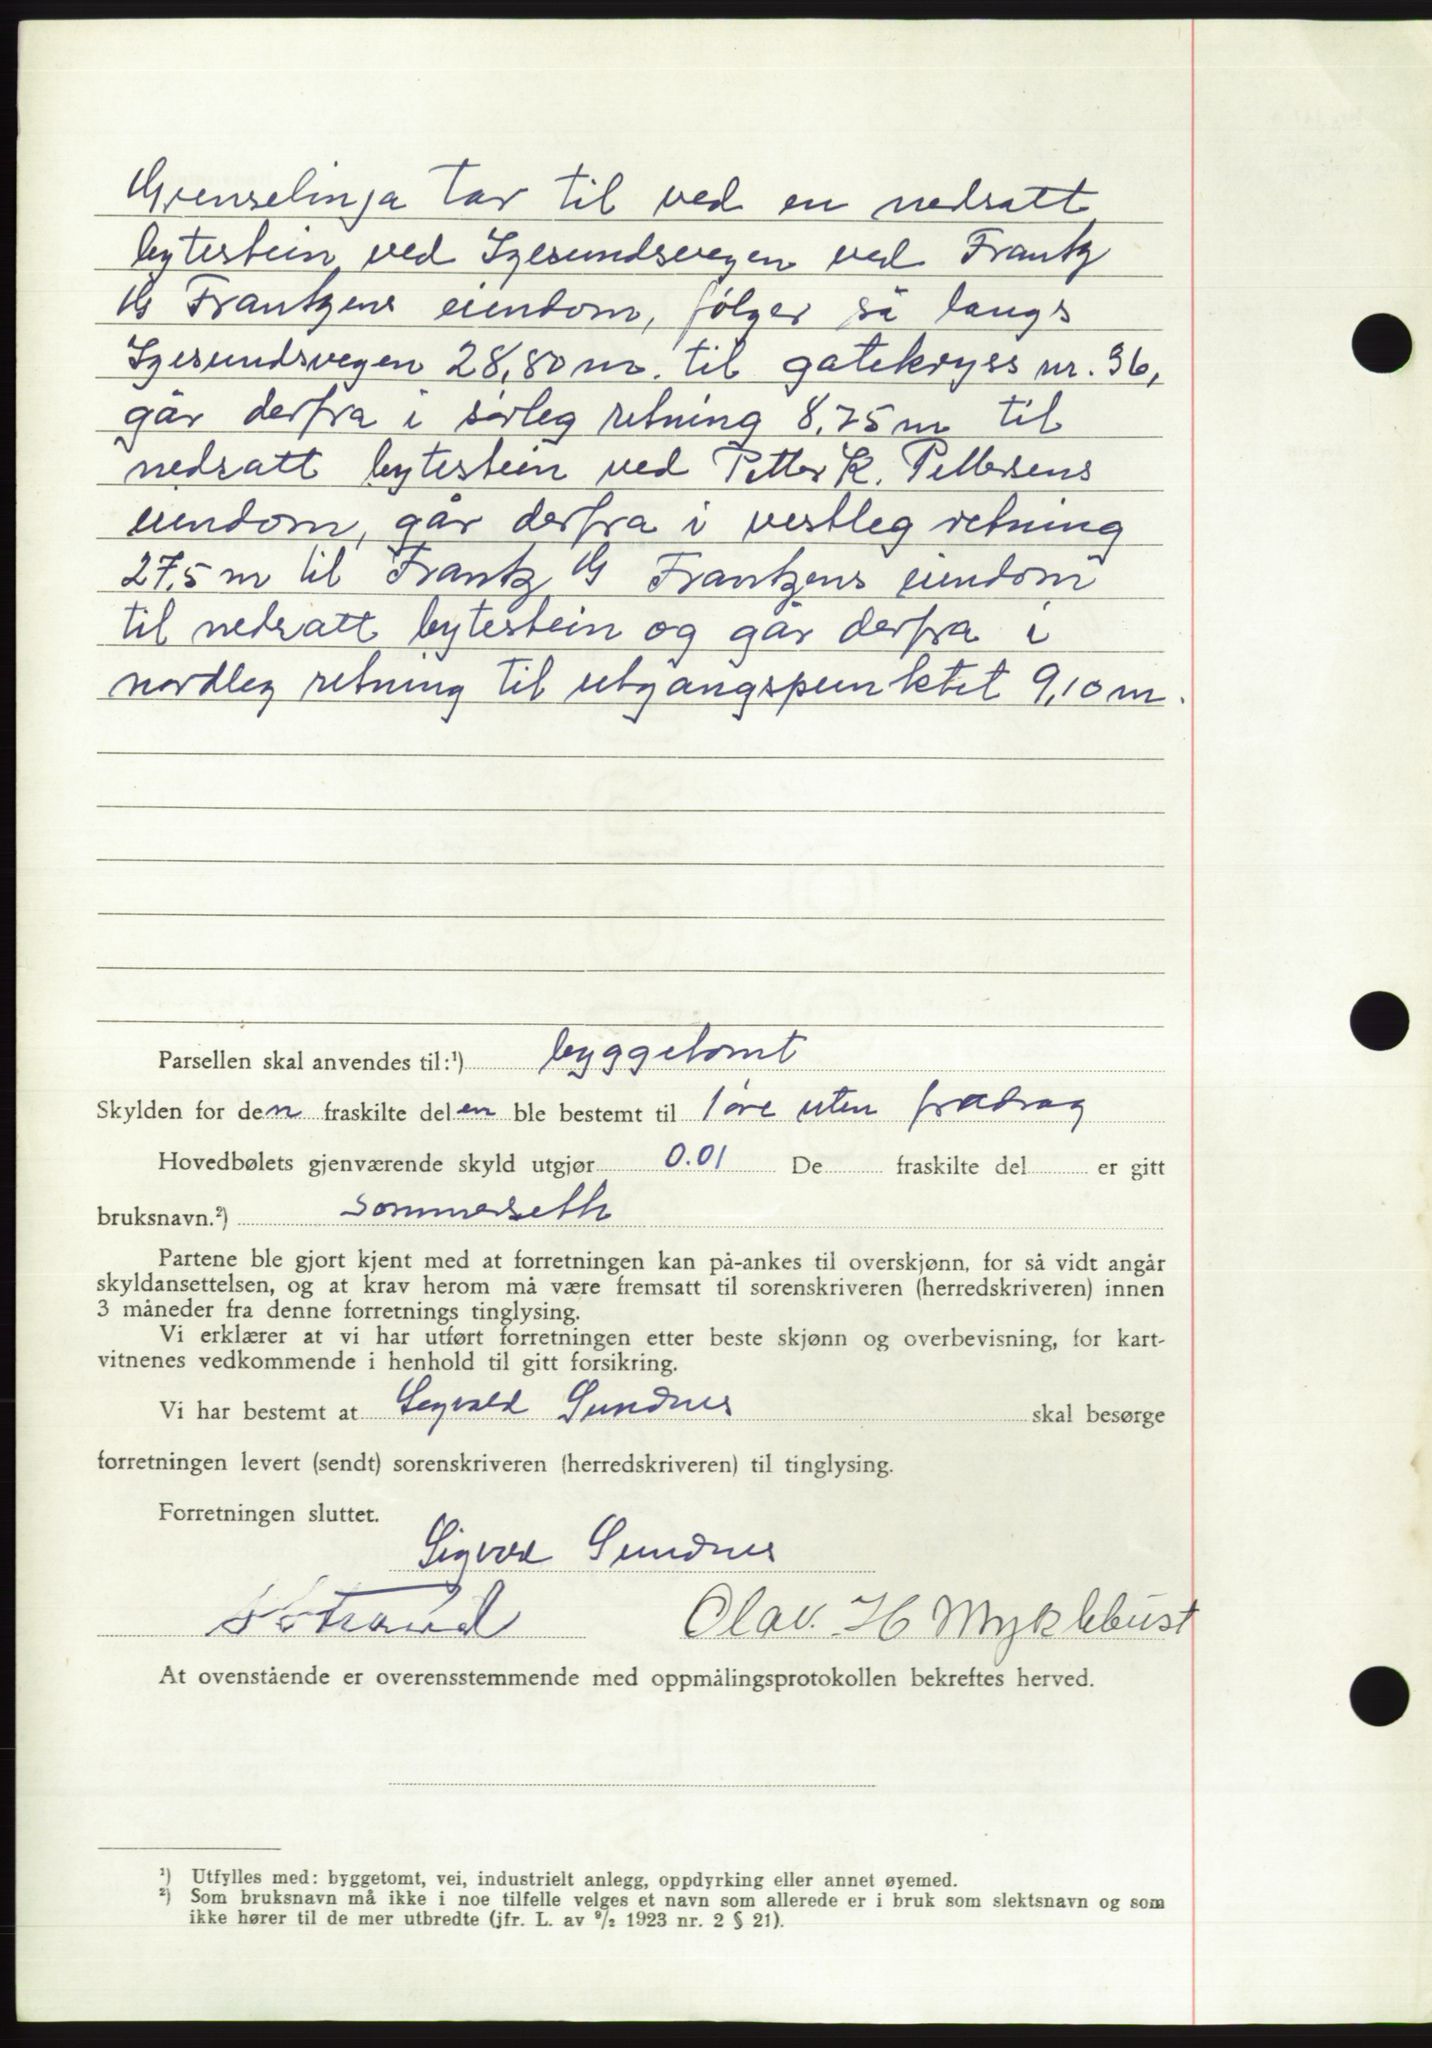 Grenselinja tar til ved en nedsatt
bytestein ved Igesundsvegen ved Frantz
G Frantzens eiendom, følger så langs
Igesundsvegen 28,80 m. til gatekryss nr. 36,
går derfra i sørleg retning 8,75 m til
nedsatt bytestein ved Petter K. Pettersens
eiendom, går derfra i vestleg retning
27,5 m til Frantz G Frantzens eiendom
til nedsatt bytestein og går derfra i
nordleg retning til utgangspunktet 9,10 m.
Parsellen skal anvendes til:¹) byggetomt
Skylden for den fraskilte delen ble bestemt til 1 øre uten fradrag
Hovedbølets gjenværende skyld utgjør 0.01 De fraskilte del er gitt
bruksnavn.²) Sommerseth
Partene ble gjort kjent med at forretningen kan på-ankes til overskjønn, for så vidt angår
skyldansettelsen, og at krav herom må være fremsatt til sorenskriveren (herredskriveren) innen
3 måneder fra denne forretnings tinglysing.
Vi erklærer at vi har utført forretningen etter beste skjønn og overbevisning, for kart-
vitnenes vedkommende i henhold til gitt forsikring.
Vi har bestemt at Sigvald Sundnes skal besørge
forretningen levert (sendt) sorenskriveren (herredskriveren) til tinglysing.
Forretningen sluttet.
Sigvald Sundnes
Strand Olav. H Myklebust
At ovenstående er overensstemmende med oppmålingsprotokollen bekreftes herved.
¹) Utfylles med: byggetomt, vei, industrielt anlegg, oppdyrking eller annet øyemed.
²) Som bruksnavn må ikke i noe tilfelle velges et navn som allerede er i bruk som slektsnavn og som
ikke hører til de mer utbredte (jfr. L. av 9/2 1923 nr. 2 § 21).